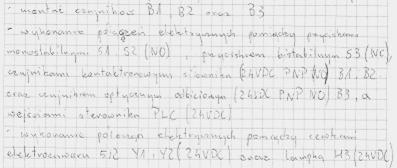 - montaż czujników B1, B2 oraz B3
- wykonanie połączeń elektrycznych pomiędzy przyciskami
monostabilnymi S1, S2 (NO), przyciskiem bistabilnym S3 (NC),
czujnikami kontaktronowymi siłownika (24VDC PNP NO) B1, B2
oraz czujnikiem optycznym odbiciowym (24VDC PNP NO) B3, a
wejściami sterownika PLC (24VDC)
- wykonanie połączeń elektrycznych pomiędzy cewkami
elektrozaworu 5/2 Y1, Y2 (24VDC) oraz lampką H3 (24VDC)